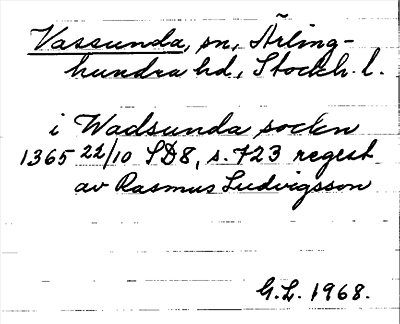 Vassunda, sn, Ärling-
hundra hd, Stockh. l.
i Wadsunda sockn
1365 22/10 SD8, s. 723 regest
av Rasmus Ludvigsson
G.L. 1968.